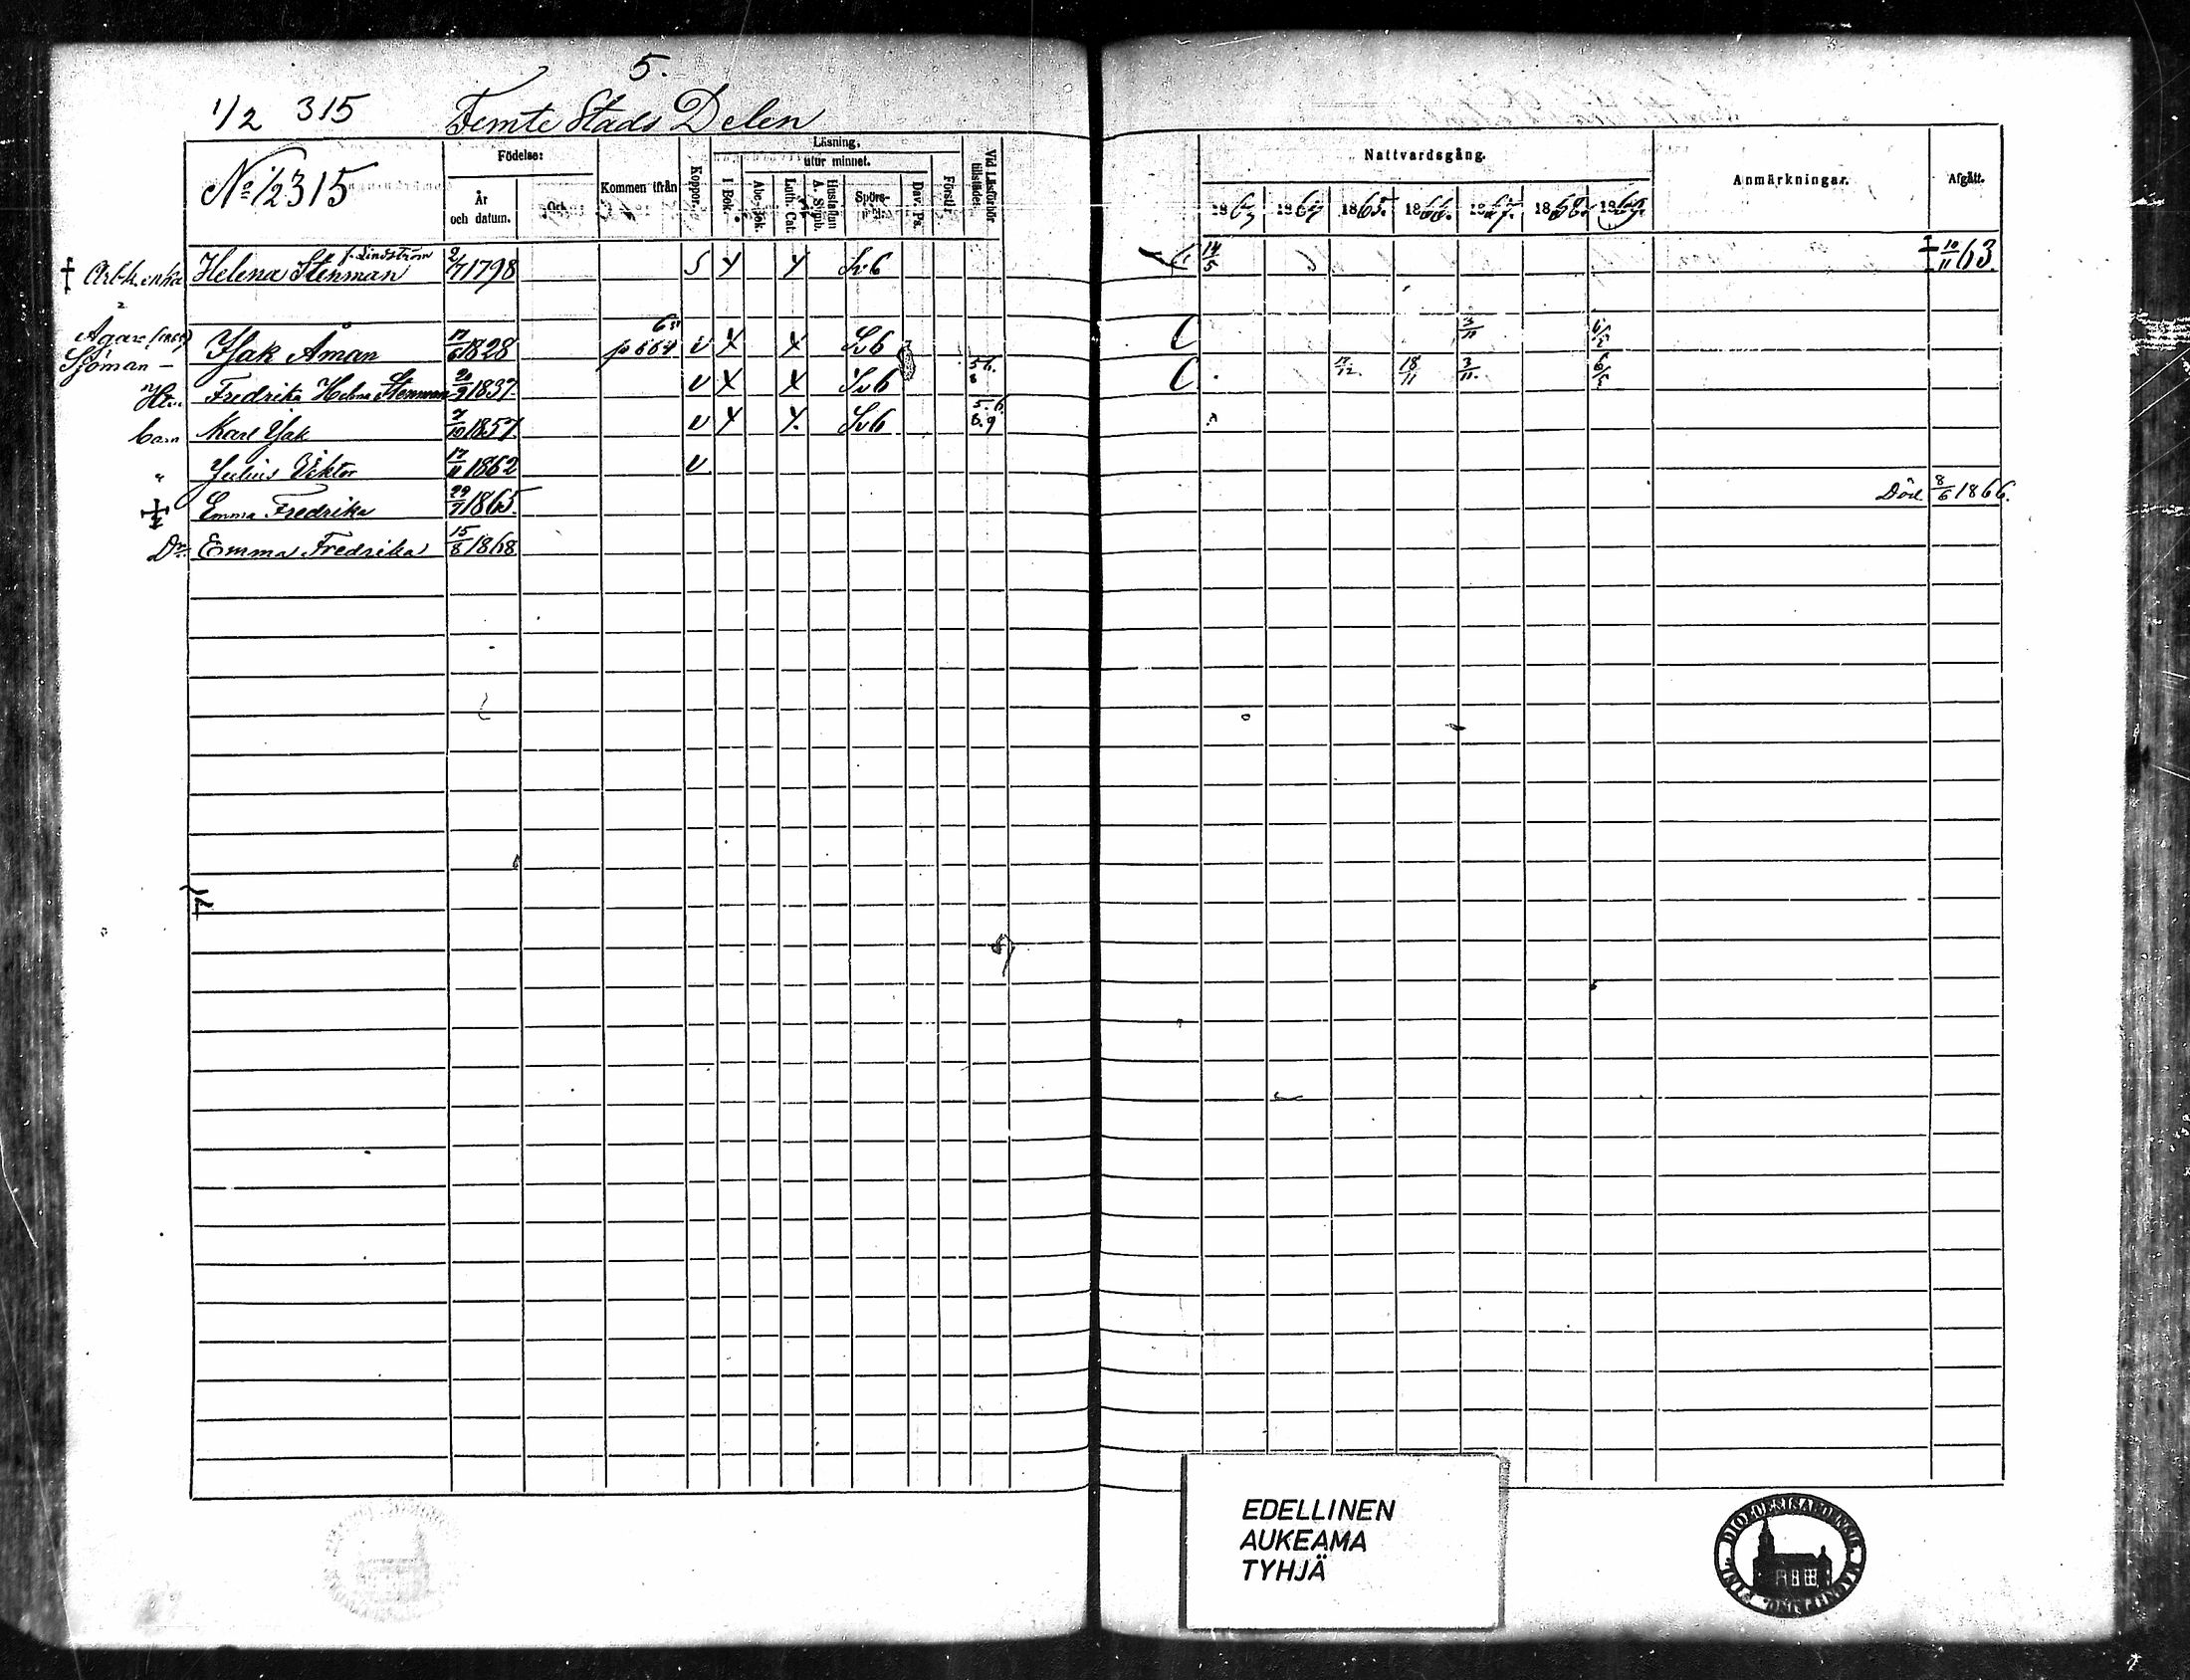 5.
1/2 315 Femte Stads Delen
No 1/2 315
Födelse:
År och datum.
Ort.
Kommen ifrån
Koppor.
Läsning,
I Bok.
utur minnet.
Abc-Bok.
Luth. Cat.
Hustaflan A. Symb.
Spörs-
Dav. Ps.
Förstår
Vid Läsförhör tillstädes.
Nattvardsgång.
1863 1864 1865. 1866. 1867. 1868. 1869.
Anmärkningar.
Afgått.
† Arb.k. enka Helena Stenman f. Lindström 2/7 1798 S Sv 6 14/5 † 10/11 63.
Ägare
Sjöman – Isak Åman 17/6 1828 p 664 v X X Sv 6 C 3/11 6/5
Hu. Fredrika Helena Stenman 21/9 1837 v X X Sv 6 5 6. 8 C 17/12. 18/11 3/11. 6/5
barn Karl Isak 7/10 1857 v Sv 6 5.6. 8.9
" Julius Viktor 17/11 1862 v
† Emma Fredrika 29/7 1865 Död 8/6 1866.
Dr. Emma Fredrika 15/8 1868
EDELLINEN
AUKEAMA
TYHJÄ